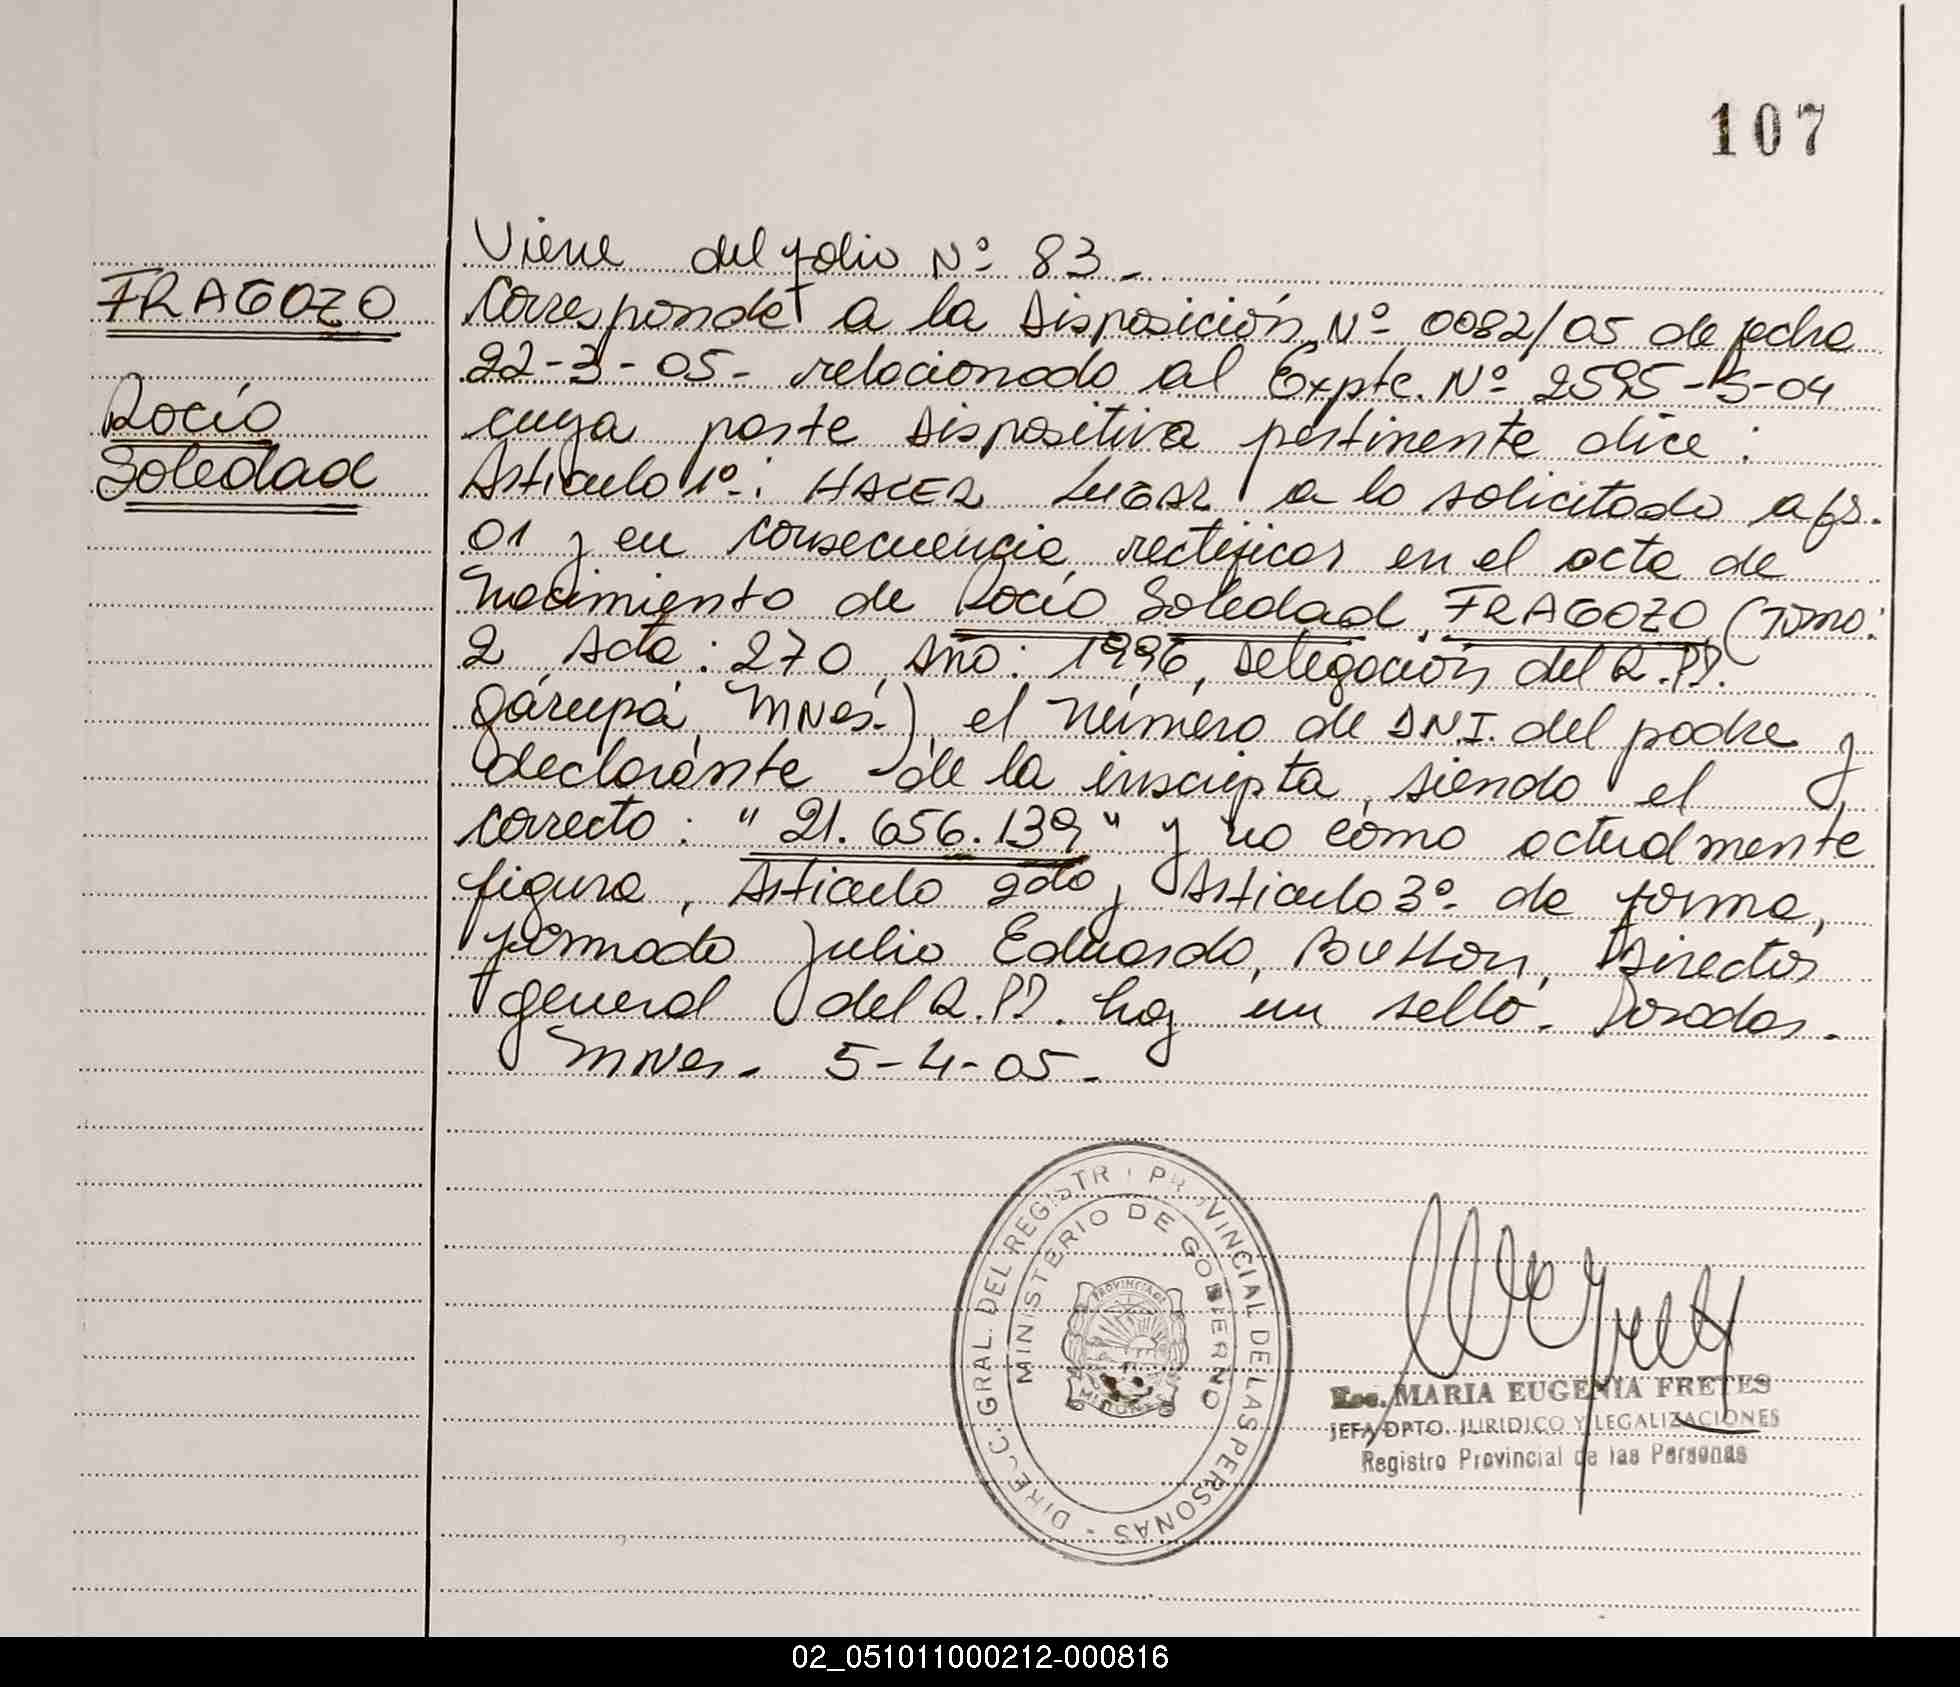 107
Viene del folio Nº 83.-
FRAGOZO
Corresponde a la Disposición Nº 0082/05 de fecha
22-3-05- relacionado al Expte. Nº 2595-S-04
Rocío
cuya parte dispositiva pertinente dice:
Soledad
Artículo 1º: HACER LUGAR a lo solicitado a fs.
01 y en consecuencia, rectificar en el acta de
nacimiento de Rocío Soledad, FRAGOZO, (Tomo:
2 Acta: 270, Año: 1996, Delegación del R.PP.
Garupá, MNes.) el número de DNI. del padre y
declarante de la inscripta, siendo el
correcto: "21.656.139" y no como actualmente
figura, Artículo 2do y Artículo 3º de forma,
firmado Julio Eduardo, Director
general del R.PP. hay un sello. Posadas.
MNes. 5-4-05.-
DIRECC. GRAL. DEL REGISTR PROVINCIAL DE LAS PERSONAS -
MINISTERIO DE GOBIERNO
PROVINCIA DE
MISIONES
MARIA EUGENIA FRETES
JEFA DPTO. JURIDICO Y LEGALIZACIONES
Registro Provincial de las Personas
02_051011000212-000816